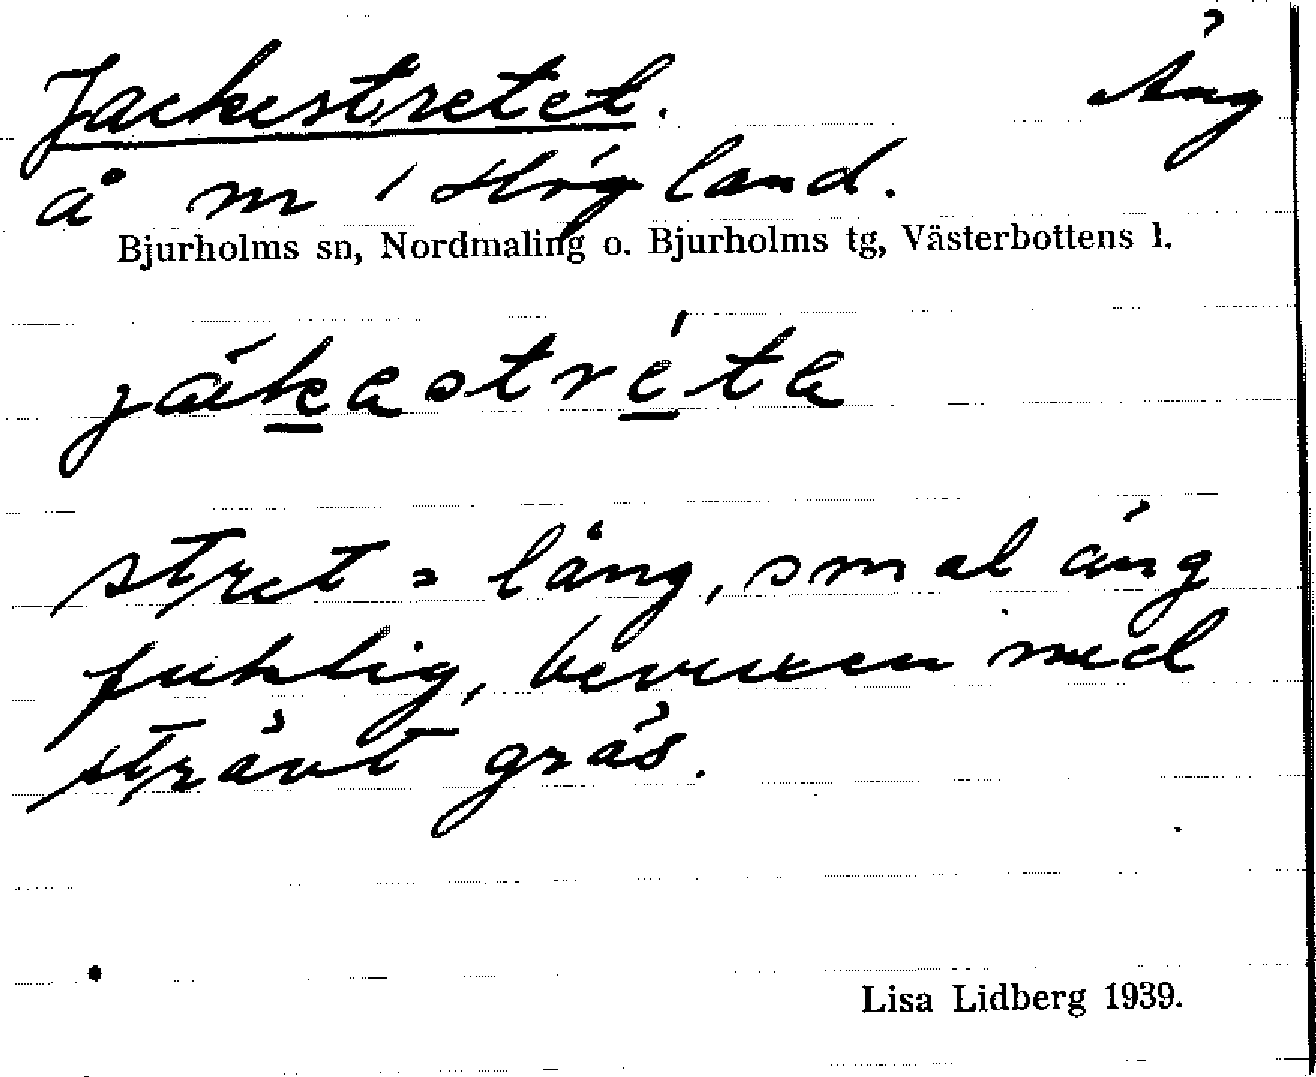 Jackestretet. Äng
å nr 1 Högland.
Bjurholms sn, Nordmaling o. Bjurholms tg, Västerbottens l.
jákastréta
stret = lång, smal äng
fuktig, bevuxen med
strävt gräs.
Lisa Lidberg 1939.